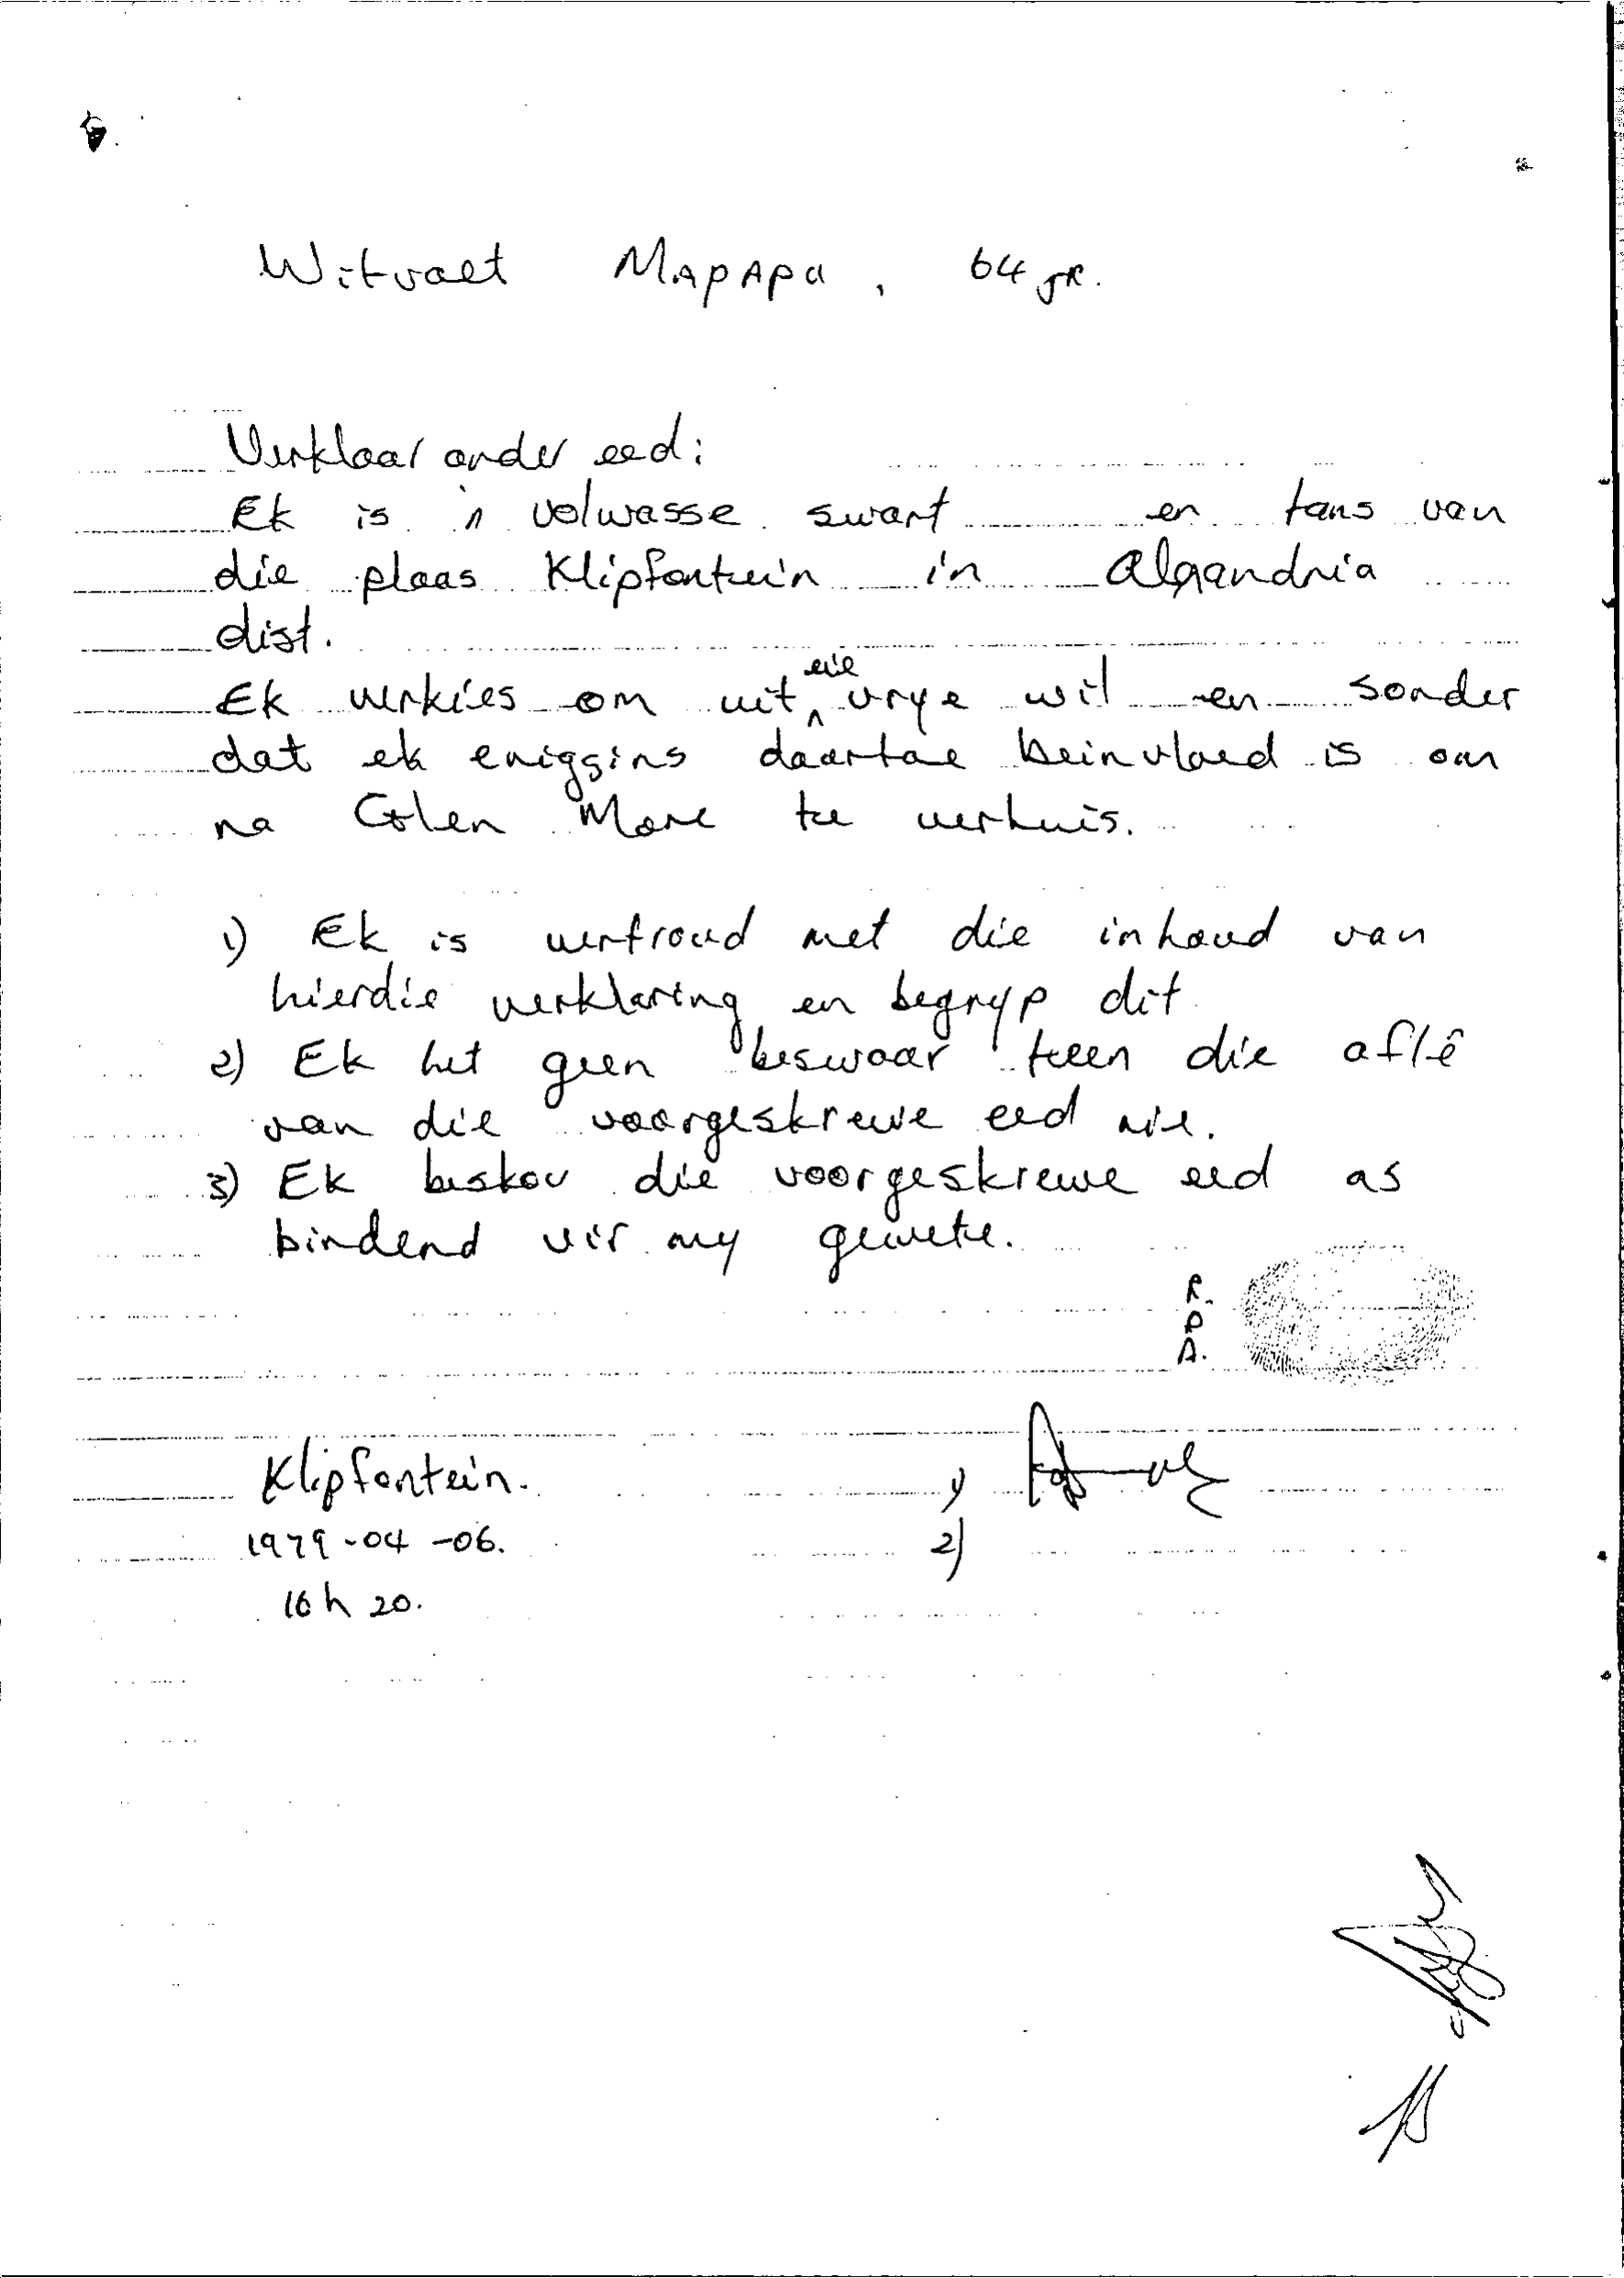 Witvoet Mapapu, 64 jr.
Verklaar onder eed:
Ek is 'n volwasse swart en tans van
die plaas Klipfontein in Alexandria
dist.
Ek verkies om uit eie vrye wil en sonder
dat ek eniggins daartoe beinvloed is om
na Glen More te verhuis.
1) Ek is vertroud met die inhoud van
hierdie verklaring en begryp dit
2) Ek het geen beswaar teen die aflê
van die voorgeskrewe eed nie.
3) Ek beskou die voorgeskrewe eed as
bindend vir my gewete.
R.
D
A.
Klipfontein. 1)
1979-04-06. 2)
16h20.